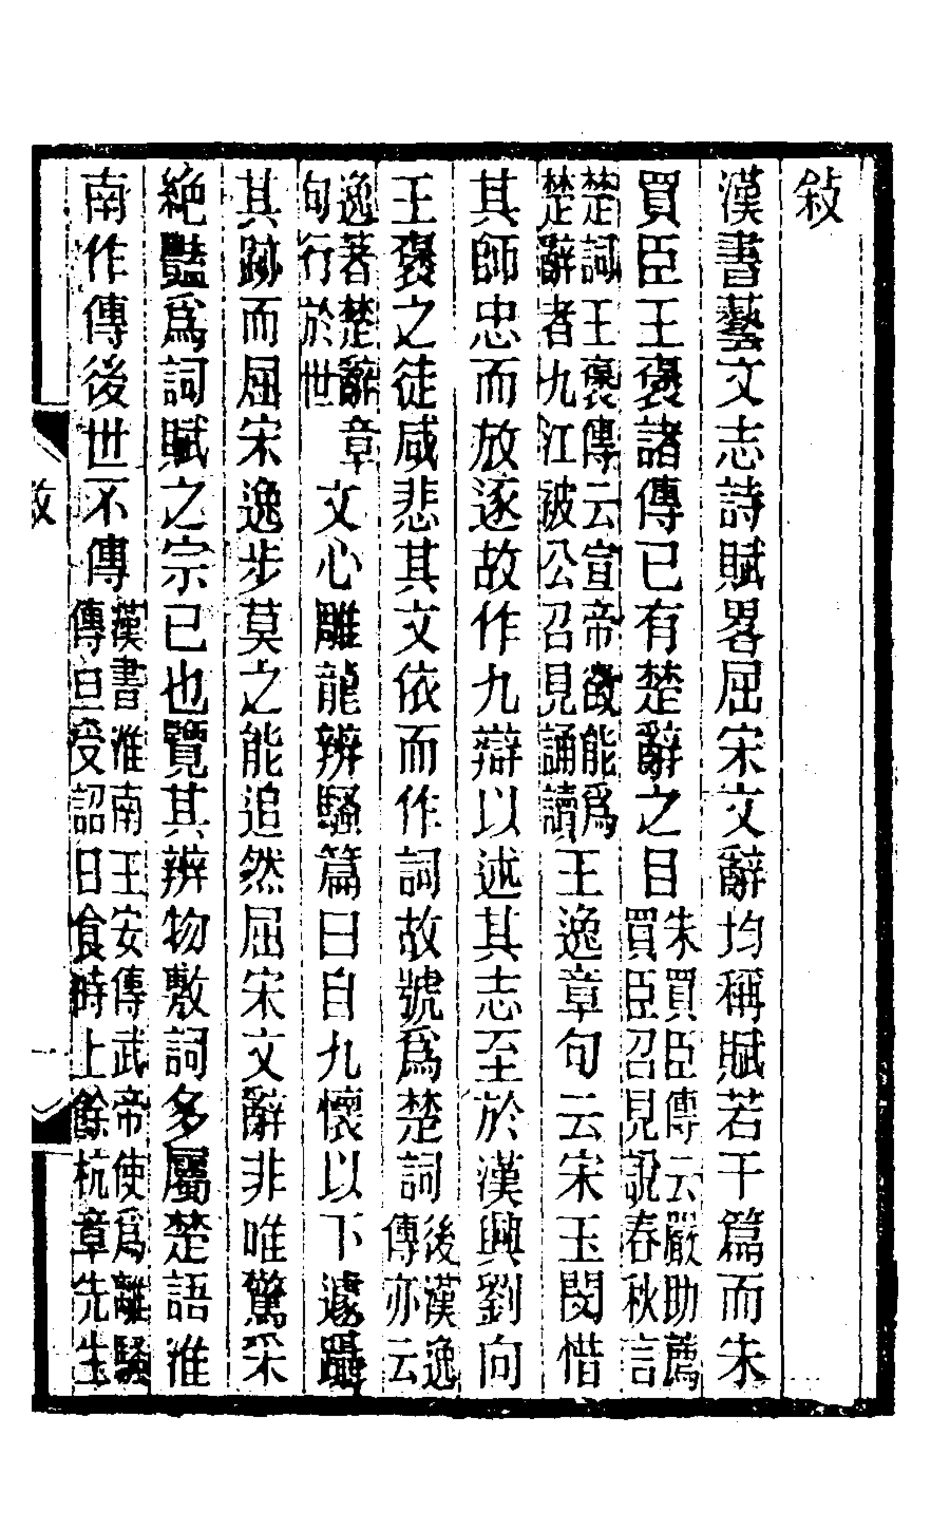 敍
漢書藝文志詩賦畧屈宋文辭均稱賦若干篇而朱
買臣王褒諸傳已有楚辭之目朱買臣傳云嚴助薦買臣召見說春秋言
楚詞王褒傳云宣帝徵能爲楚辭者九江被公召見誦讀王逸章句云宋玉閔惜
其師忠而放逐故作九辯以述其志至於漢興劉向
王褒之徒咸悲其文依而作詞故號爲楚詞後漢逸傳亦云
逸著楚辭章句行於世文心雕龍辨騷篇曰自九懷以下遽躡
其跡而屈宋逸步莫之能追然屈宋文辭非唯驚采
絶豔爲詞賦之宗已也覽其辨物敷詞多屬楚語淮
南作傳後世不傳漢書淮南王安傳武帝使爲離騷傳旦受詔日食時上餘杭章先生
敘
一